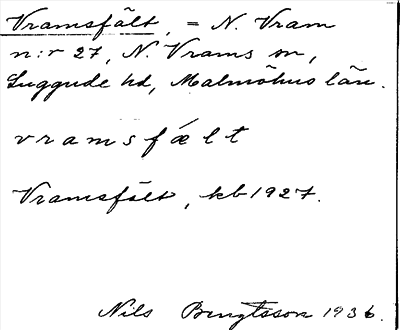 Vramsfält, = N. Vram
n:r 27, N. Vrams sn,
Luggude hd, Malmöhus län.
vramsfælt
Vramsfält, kb 1927.
Nils Bengtsson 1936.